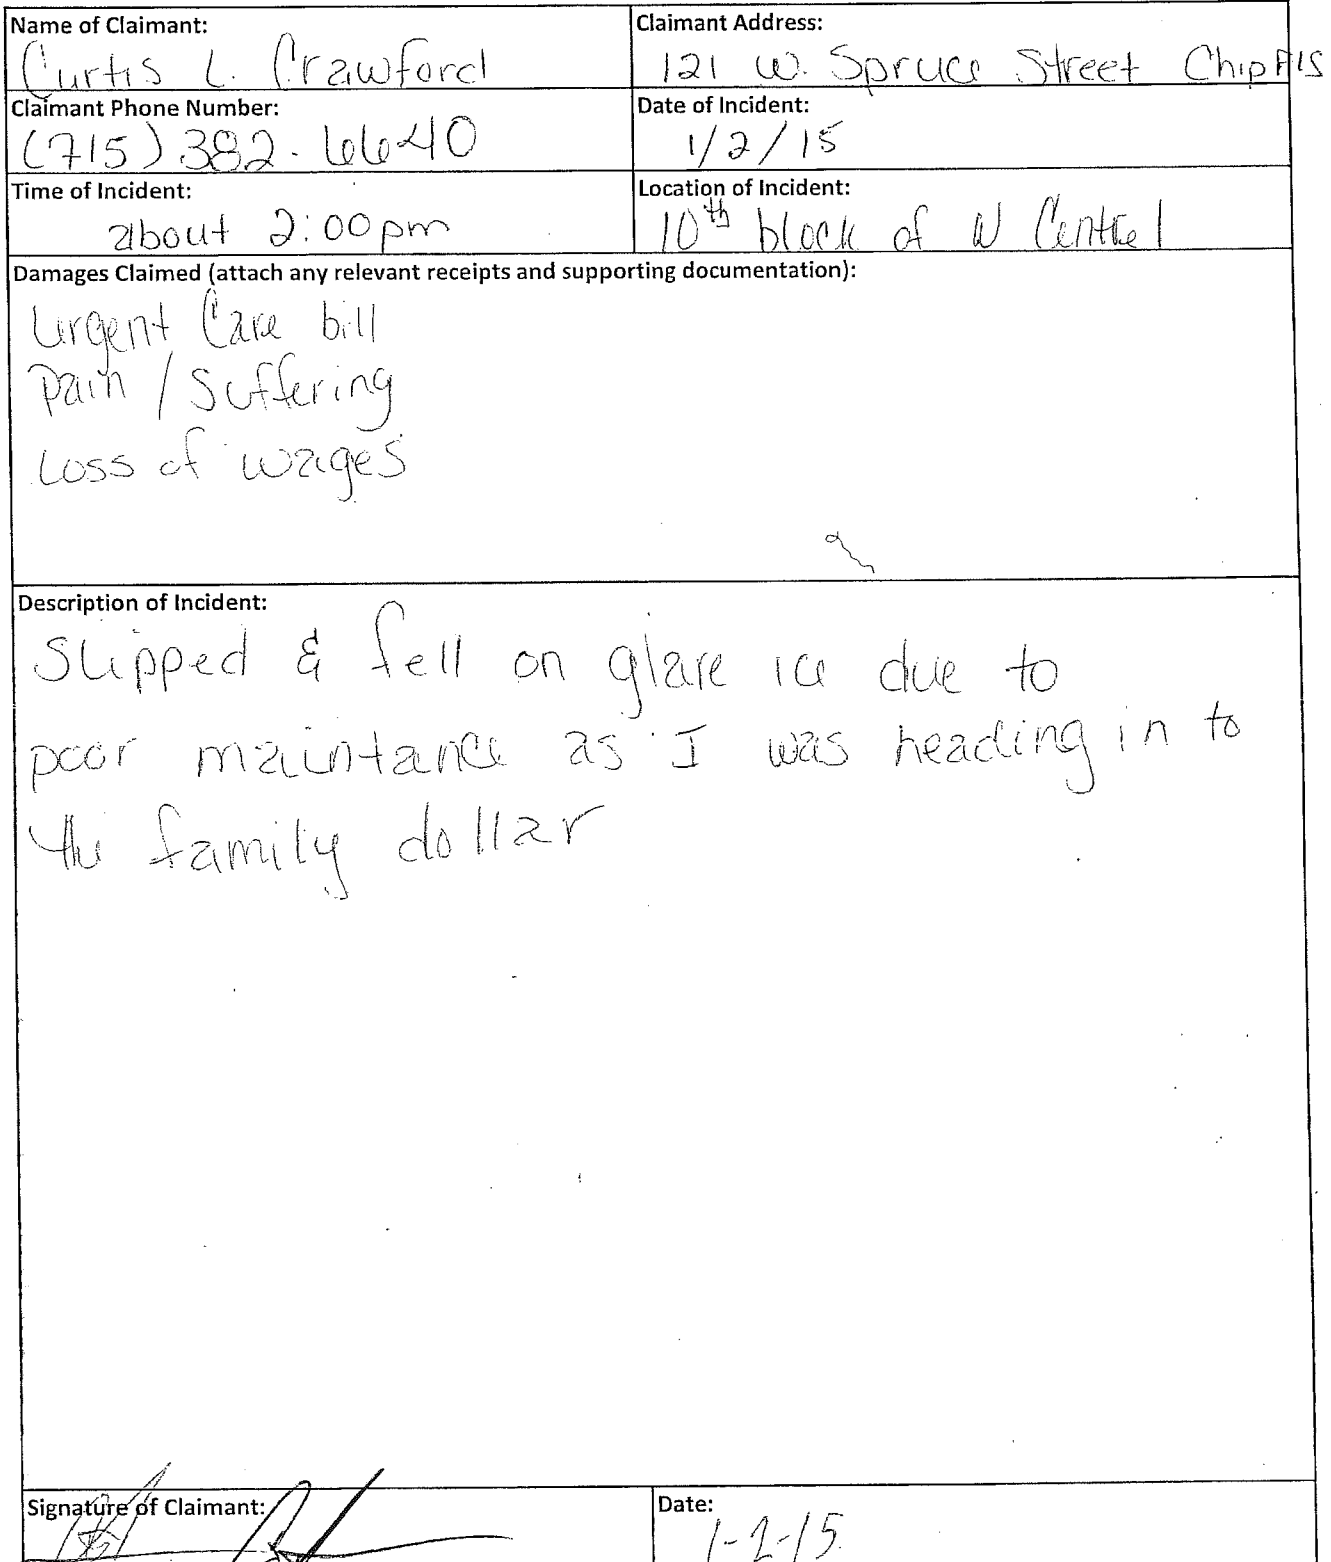 Name of Claimant: Claimant Address:
Curtis L. Crawford 121 W. Spruce Street Chip Fls
Claimant Phone Number: Date of Incident:
(715) 382-6640 1/2/15
Time of Incident: Location of Incident:
about 2:00pm 10th block of W Central
Damages Claimed (attach any relevant receipts and supporting documentation):
Urgent Care bill
Pain / Suffering
Loss of wages
Description of Incident:
Slipped & fell on glare ice due to
poor maintance as I was heading in to
the family dollar
Signature of Claimant: Date:
1-2-15